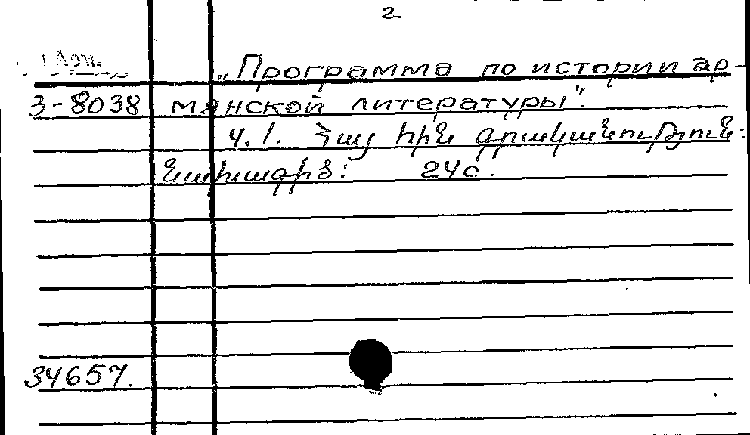 2
"Программа по истории ар-
3-8038 мянской литературы".
ч. I. Հայ հին գրականություն:
Նախագիծ: 24с.
34657.